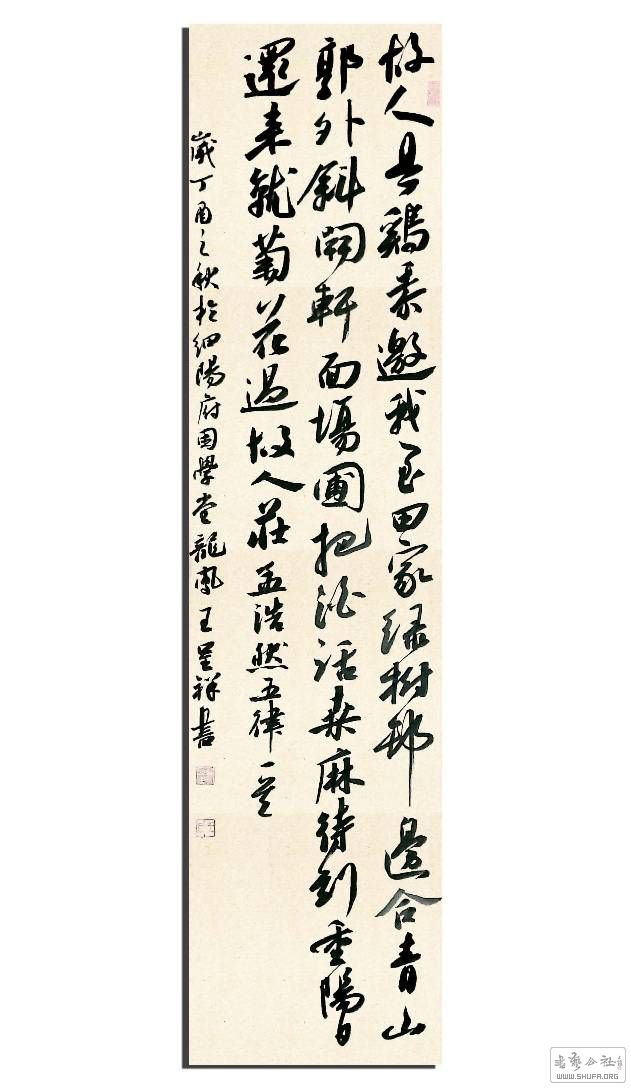 故人具鷄黍邀我至田家緑樹邨邊合青山
郭外斜開軒面場圃把酒話桑麻待到重陽日
還来就菊花過故人莊孟浩然五律一首
歲丁酉之秋於細陽府国學堂龍鳳王呈祥書
书艺公社
WWW.SHUFA.ORG